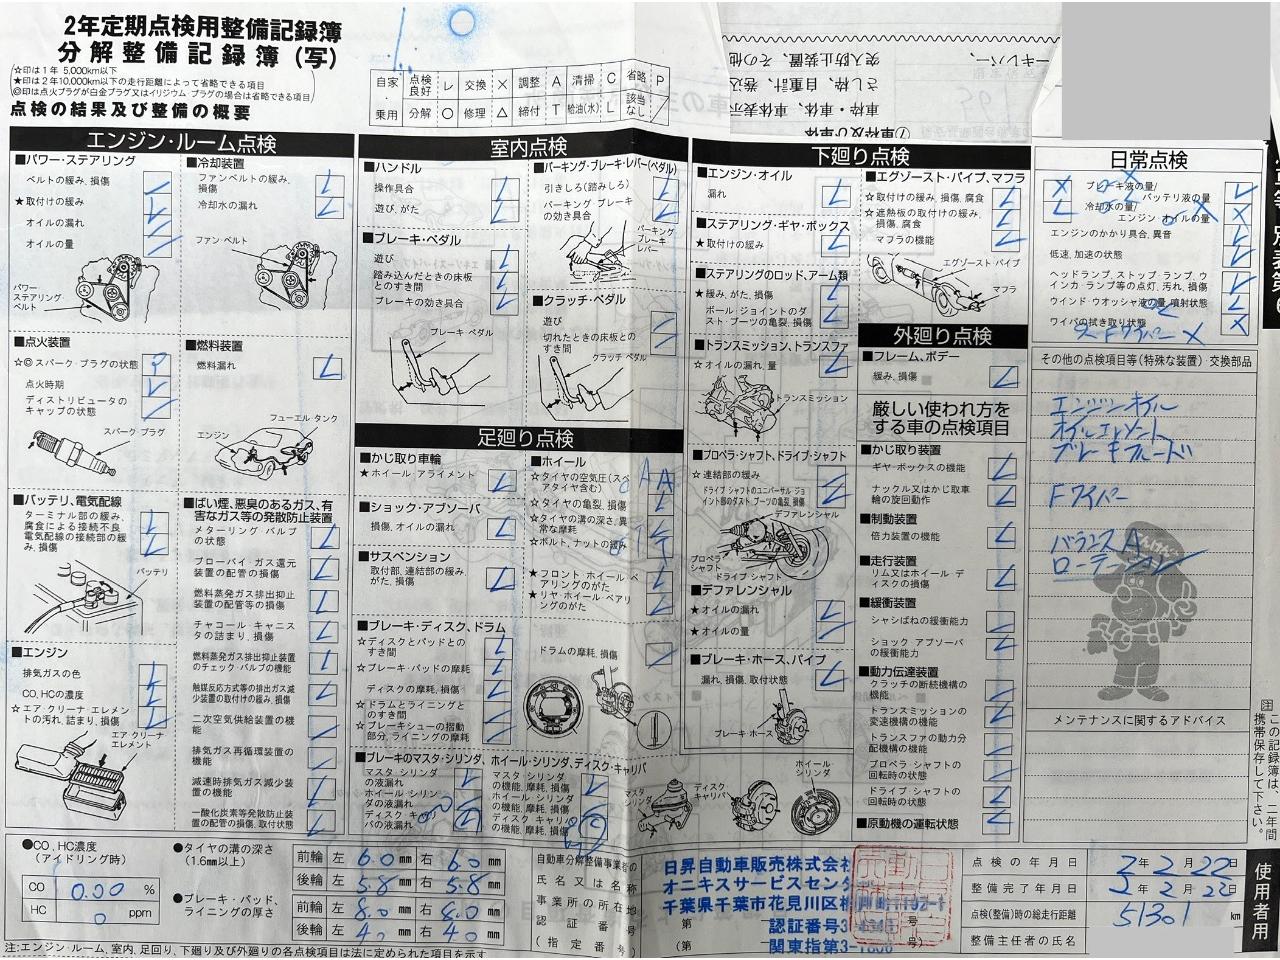 2年定期点検用整備記録簿
分解整備記録簿(写)
☆印は1年 5,000km以下
★印は2年10,000km以下の走行距離によって省略できる項目
◎印は点火プラグが白金プラグ又はイリジウム・プラグの場合は省略できる項目
点検の結果及び整備の概要
自家・乗用
点検良好 レ 交換 × 調整 A 清掃 C 省略 P
分解 ○ 修理 △ 締付 T 給油(水) L 該当なし /
エンジン・ルーム点検
■パワー・ステアリング
ベルトの緩み, 損傷
★取付けの緩み
オイルの漏れ
オイルの量
パワー・ステアリング・ベルト
■冷却装置
ファンベルトの緩み, 損傷
冷却水の漏れ
ファン・ベルト
■点火装置
☆◎スパーク・プラグの状態 P
点火時期
ディストリビュータのキャップの状態
スパーク・プラグ
■燃料装置
燃料漏れ
フューエル・タンク
エンジン
■バッテリ, 電気配線
ターミナル部の緩み, 腐食による接続不良
電気配線の接続部の緩み, 損傷
バッテリ
■ばい煙, 悪臭のあるガス, 有害なガス等の発散防止装置
メターリング・バルブの状態
ブローバイ・ガス還元装置の配管の損傷
燃料蒸発ガス排出抑止装置の配管等の損傷
チャコール・キャニスタの詰まり, 損傷
燃料蒸発ガス排出抑止装置のチェック・バルブの機能
触媒反応方式等の排出ガス減少装置の取付けの緩み, 損傷
二次空気供給装置の機能
排気ガス再循環装置の機能
減速時排気ガス減少装置の機能
一酸化炭素等発散防止装置の配管の損傷, 取付状態
■エンジン
排気ガスの色
CO, HCの濃度
☆エア・クリーナ・エレメントの汚れ, 詰まり, 損傷
エア・クリーナ・エレメント
室内点検
■ハンドル
操作具合
遊び, がた
■ブレーキ・ペダル
遊び
踏み込んだときの床板とのすき間
ブレーキの効き具合
ブレーキ・ペダル
■パーキング・ブレーキ・レバー(ペダル)
引きしろ(踏みしろ)
パーキング・ブレーキの効き具合
パーキング・ブレーキ・レバー
■クラッチ・ペダル
遊び
切れたときの床板とのすき間
クラッチ・ペダル
足廻り点検
■かじ取り車輪
★ホイール・アライメント
■ショック・アブソーバ
損傷, オイルの漏れ
■サスペンション
取付部, 連結部の緩み, がた, 損傷
■ブレーキ・ディスク, ドラム
☆ディスクとパッドとのすき間
☆ブレーキ・パッドの摩耗
ディスクの摩耗, 損傷
☆ドラムとライニングとのすき間
☆ブレーキシューの摺動部分, ライニングの摩耗
■ホイール
☆タイヤの空気圧(スペアタイヤ含む) A
☆タイヤの亀裂, 損傷
☆タイヤの溝の深さ, 異常な摩耗
☆ボルト, ナットの緩み
★フロント・ホイール・ベアリングのがた
★リヤ・ホイール・ベアリングのがた
ドラムの摩耗, 損傷
■ブレーキのマスタ・シリンダ, ホイール・シリンダ, ディスク・キャリパ
マスタ・シリンダの液漏れ
ホイール・シリンダの液漏れ
ディスク・キャリパの液漏れ
マスタ・シリンダの機能, 摩耗, 損傷
ホイール・シリンダの機能, 摩耗, 損傷
ディスク・キャリパの機能, 摩耗, 損傷
マスタ・シリンダ
ディスク・キャリパ
ホイール・シリンダ
下廻り点検
■エンジン・オイル
漏れ
■ステアリング・ギヤ・ボックス
★取付けの緩み
■ステアリングのロッド, アーム類
★緩み, がた, 損傷
ボール・ジョイントのダスト・ブーツの亀裂, 損傷
■トランスミッション, トランスファ
☆オイルの漏れ, 量
トランスミッション
■プロペラ・シャフト, ドライブ・シャフト
☆連結部の緩み
ドライブ・シャフトのユニバーサル・ジョイント部のダスト・ブーツの亀裂, 損傷
デファレンシャル
プロペラ・シャフト
ドライブ・シャフト
■デファレンシャル
★オイルの漏れ
★オイルの量
■ブレーキ・ホース, パイプ
漏れ, 損傷, 取付状態
ブレーキ・ホース
■エグゾースト・パイプ, マフラ
☆取付けの緩み, 損傷, 腐食
☆遮熱板の取付けの緩み, 損傷, 腐食
マフラの機能
エグゾースト・パイプ
マフラ
外廻り点検
■フレーム, ボデー
緩み, 損傷
厳しい使われ方をする車の点検項目
■かじ取り装置
ギヤ・ボックスの機能
ナックル又はかじ取車輪の旋回動作
■制動装置
倍力装置の機能
■走行装置
リム又はホイール・ディスクの損傷
■緩衝装置
シャシばねの緩衝能力
ショック・アブソーバの緩衝能力
■動力伝達装置
クラッチの断続機構の機能
トランスミッションの変速機構の機能
トランスファの動力分配機構の機能
プロペラ・シャフトの回転時の状態
ドライブ・シャフトの回転時の状態
■原動機の運転状態
日常点検
ブレーキ液の量/
バッテリ液の量
冷却水の量/
エンジン・オイルの量
エンジンのかかり具合, 異音
低速, 加速の状態
ヘッドランプ, ストップ・ランプ, ウインカ・ランプ等の点灯, 汚れ, 損傷
ウインド・ウオッシャ液の量, 噴射状態
ワイパの拭き取り状態
Fワイパー ×
その他の点検項目等(特殊な装置)・交換部品
エンジンオイル
オイルエレメント
ブレーキフルード
Fワイパー
バランス A
ローテーション
メンテナンスに関するアドバイス
注 この記録簿は、二年間携帯保存して下さい。
使用者用
●CO, HC濃度
(アイドリング時)
CO 0.00 %
HC 0 ppm
●タイヤの溝の深さ
(1.6mm以上)
前輪 左 6.0 mm 右 6.0 mm
後輪 左 5.8 mm 右 5.8 mm
●ブレーキ・パッド, ライニングの厚さ
前輪 左 8.0 mm 右 8.0 mm
後輪 左 4.0 mm 右 4.0 mm
自動車分解整備事業者の
氏名又は名称
事業所の所在地
認証番号
(指定番号)
日昇自動車販売株式会社
オニキスサービスセンター
千葉県千葉市花見川区
認証番号3
関東指第3-
点検の年月日 2年2月22日
整備完了年月日 2年2月22日
点検(整備)時の総走行距離 51301 km
整備主任者の氏名
注:エンジン・ルーム, 室内, 足廻り, 下廻り及び外廻りの各点検項目は法に定められた項目を示す